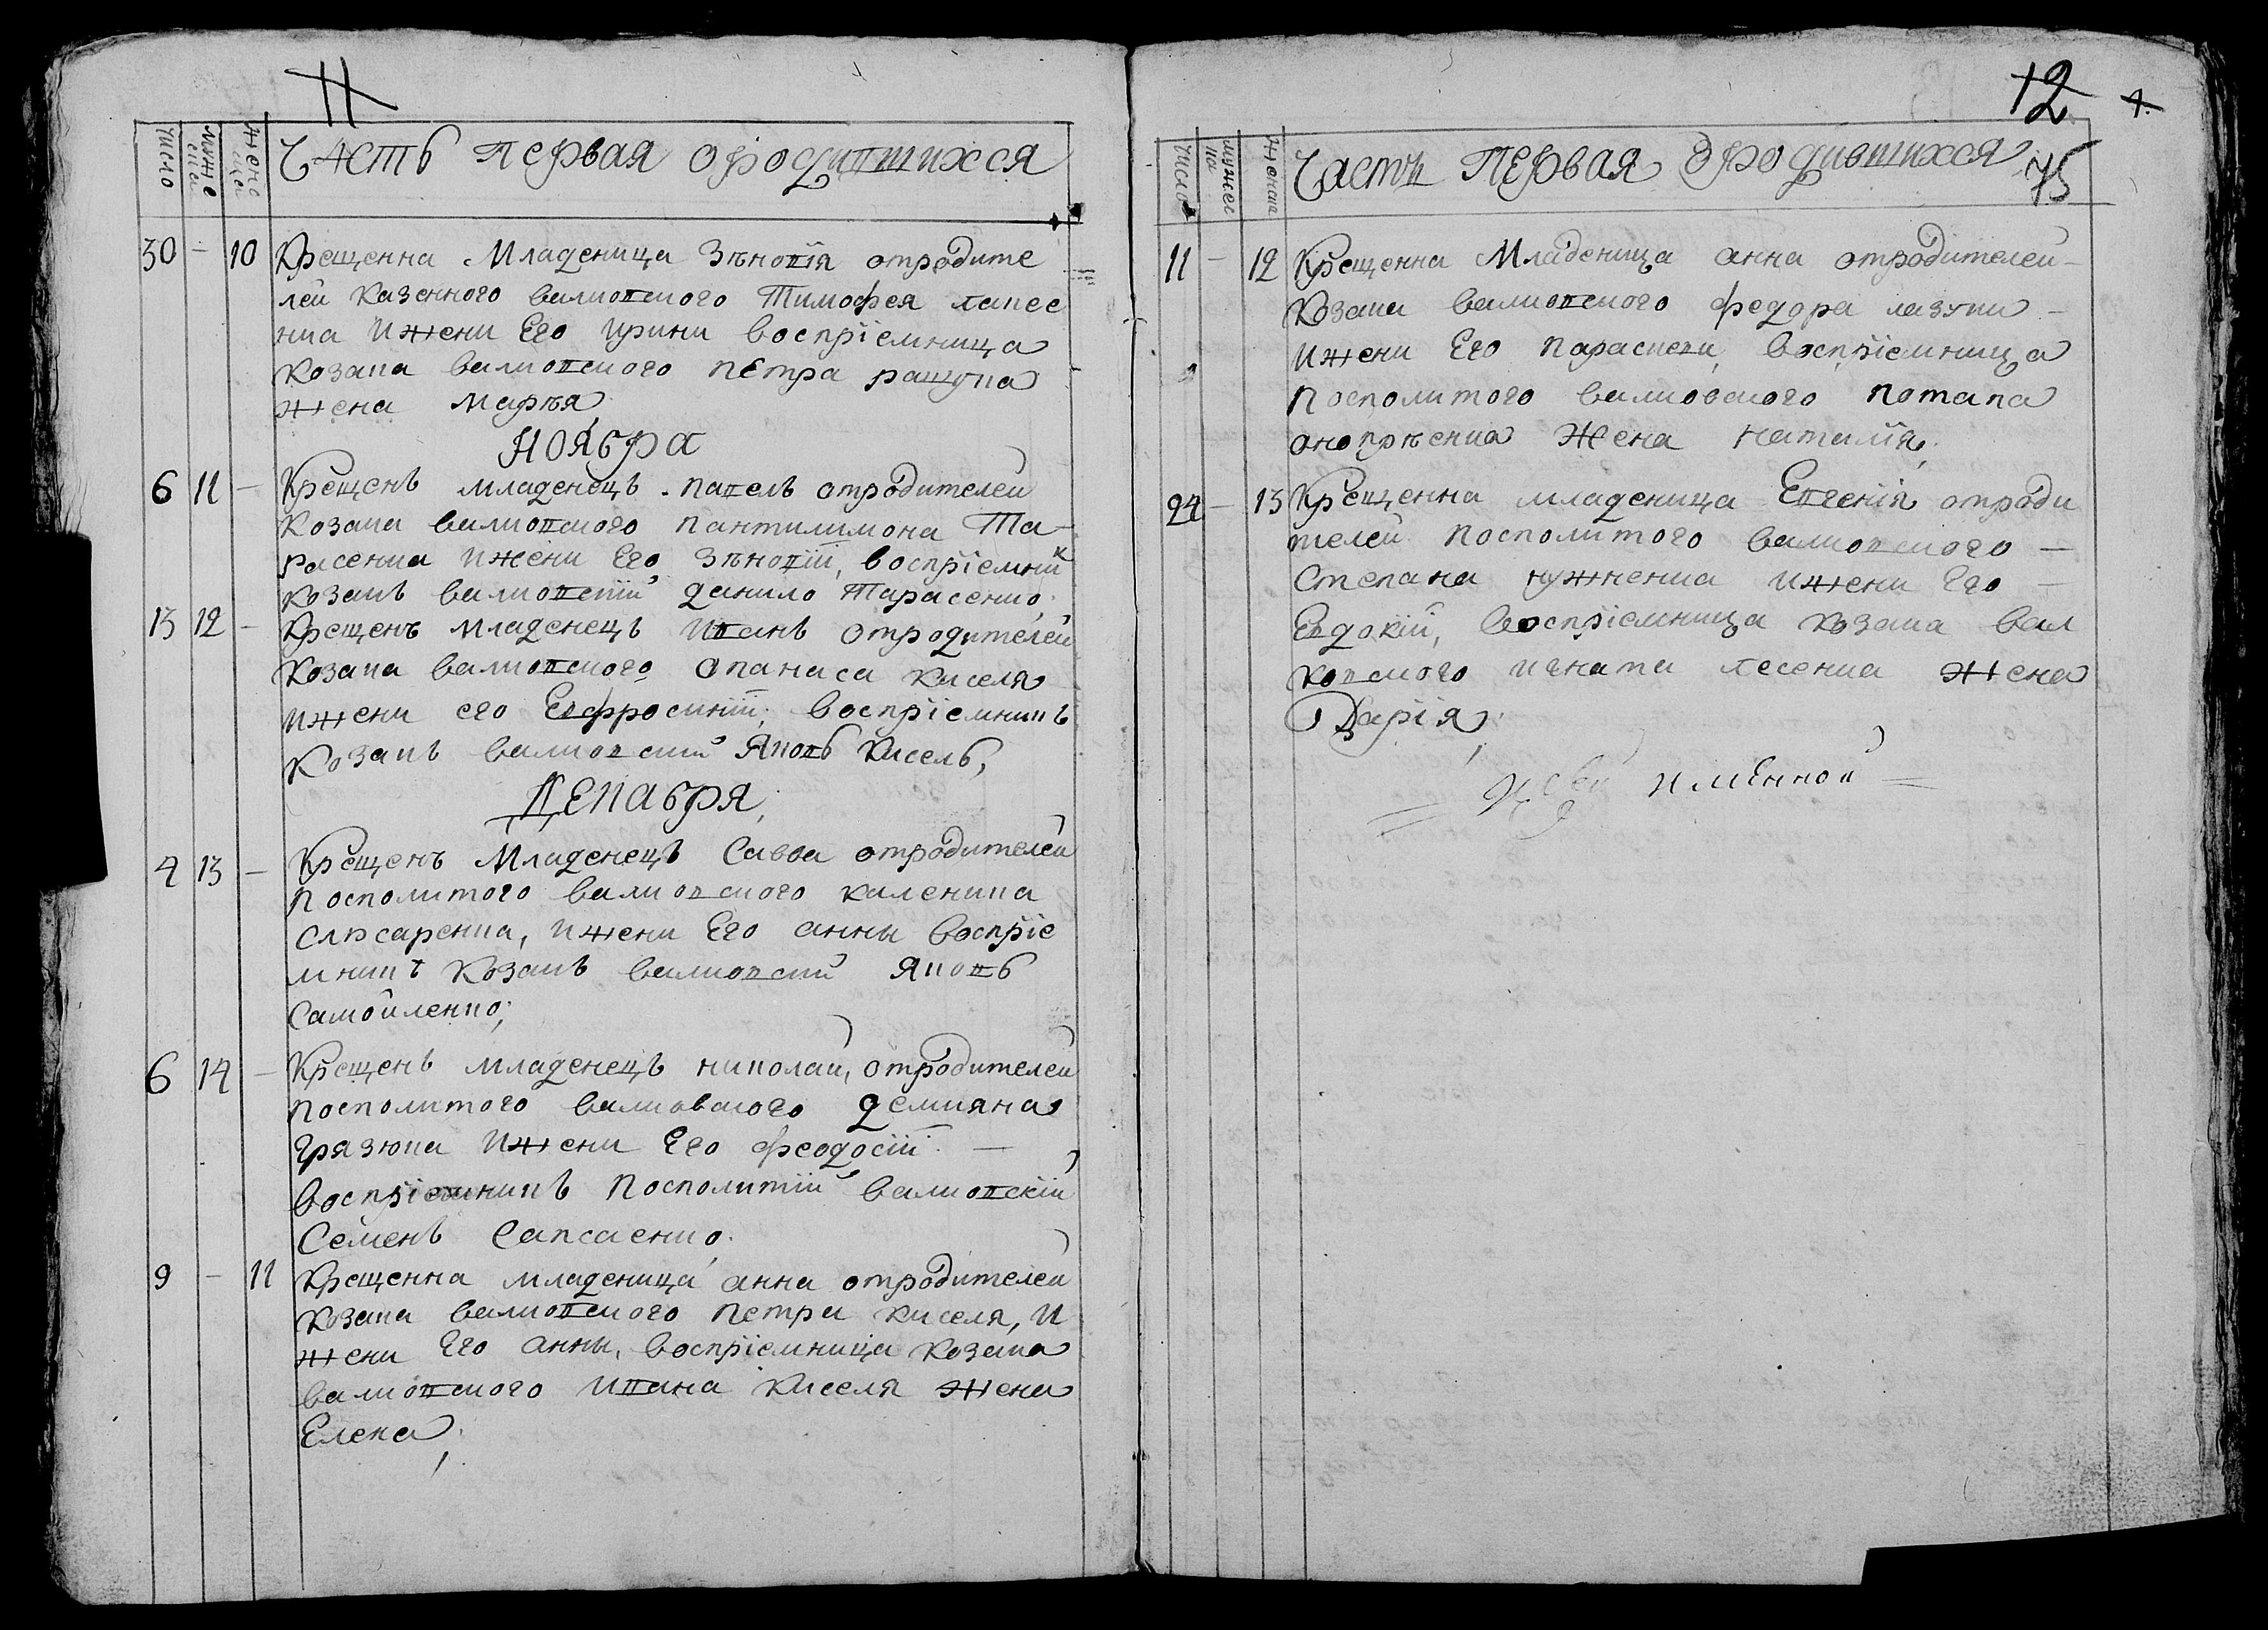 11
Число
Муже
ска
Жене
ска
Часть первая о родившихся
30 - 10 Крещенна Младеница Зѣновія отродите
лей казенного валковского Тимофея лапее
нка Ижени Его Ирини воспріемница
козака валковского пЕтра рашупа
жена марѣя
Ноября
6 11 - Крещенъ младенецъ павелъ отродителей
козака валковского пантилимона Та-
расенка Ижени Его Зѣновіи, воспріемник
козакъ валковскій данило Тарасенко.
13 12 - Крещенъ младенецъ Иванъ отродителей
козака валковского Опанаса киселя
ижени его Евфросиніи; воспріемникъ
козакъ валковскій Яковъ кисель,
Декабря,
4 13 - Крещенъ Младенецъ Савва отродителей
посполитого валковского каленика
слѣсаренка, ижени Его анны воспріе
мникъ козакъ валковскій Яковъ
самойленко;
6 14 - Крещенъ младенецъ николай, отродителей
посполитого валковского демияна
грязюка Ижени Его феодосіи. -
воспріемникъ посполитій валковскій
Семенъ Сапсаенко.
9 - 11 Крещенна младеница анна отродителей
козака валковского петра киселя, И
жени Его анны, воспріемница козака
валковского Ивана киселя жена
Елена,
12
Число
мужес
ка
Женска
Часть Первая Ородившихся 75
11 - 12 Крещенна Младеница анна отродителей-
козака валковского федора лазупи -
Ижени Его параскеви, воспріемница
посполитого валковского потапа
онопрѣенка Жена наталія,
24 - 13 Крещенна младеница Евгенія отроди
телей посполитого валковского -
степана нужненка ижени Его -
Евдокіи, воспріемница козака вал
ковского игната лесенка жена
Дарія,
именной